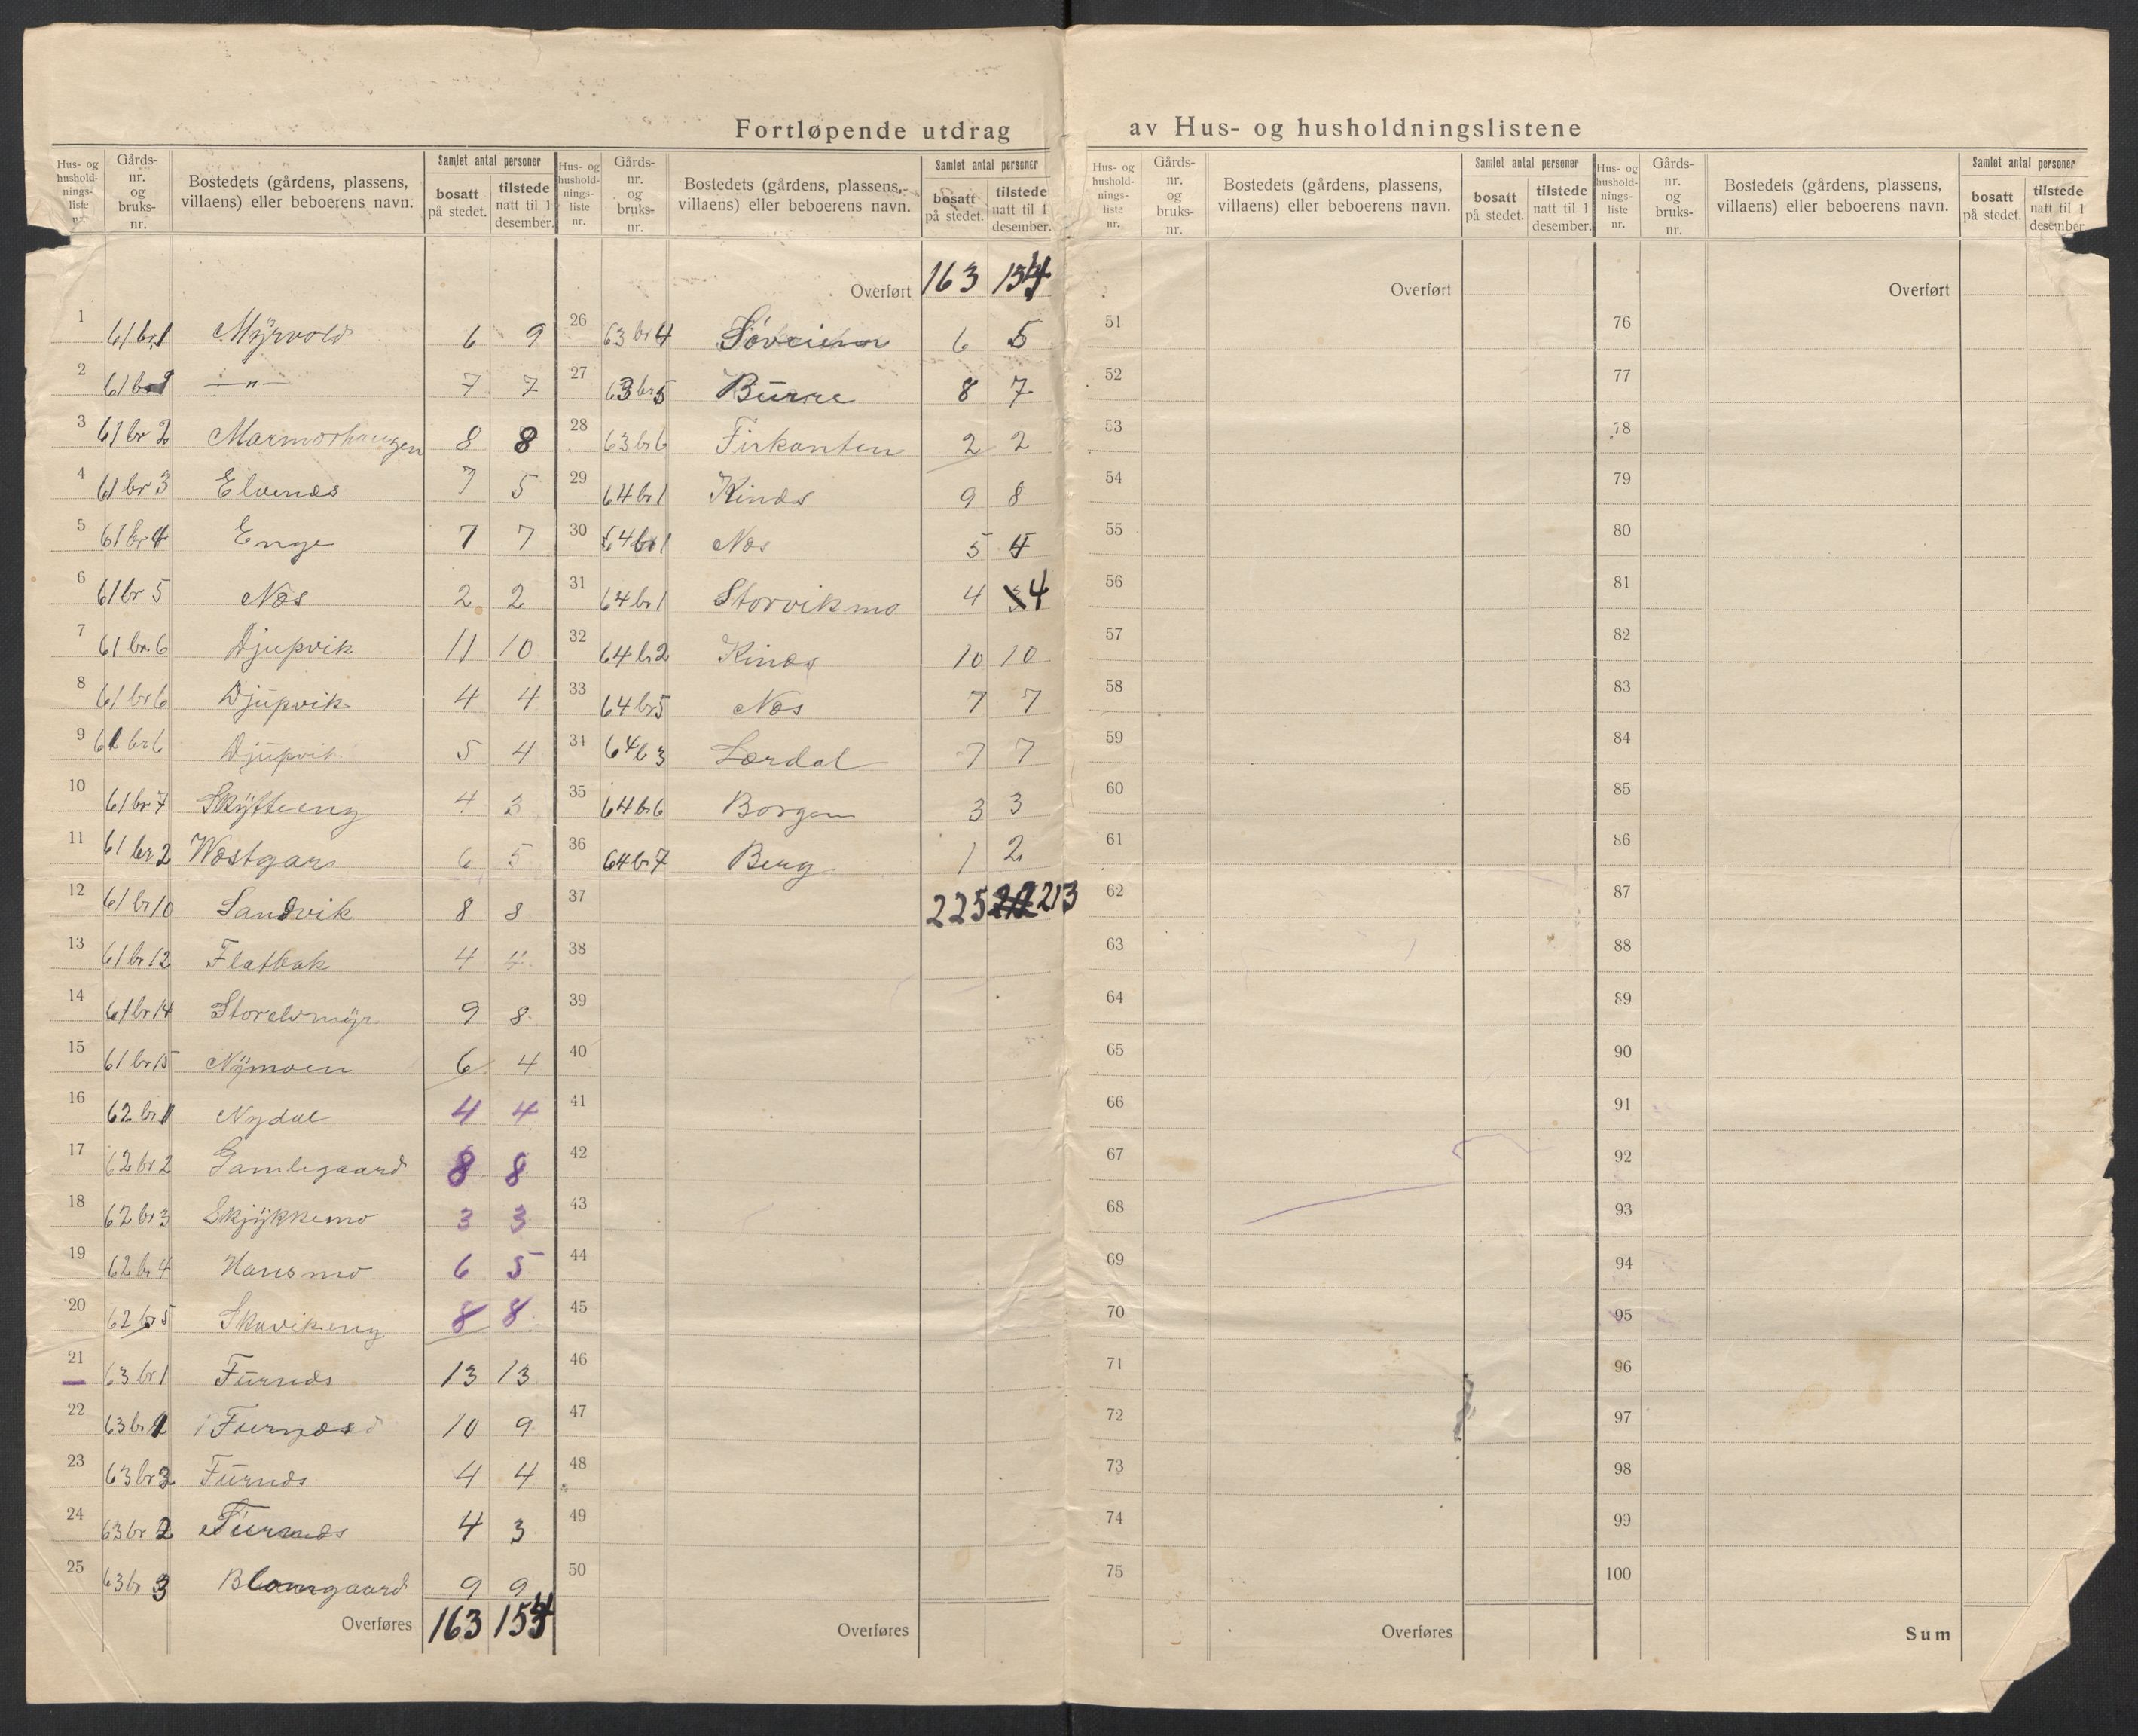 Fortløpende utdrag av Hus- og husholdningslistene
Hus- og husholdningsliste nr. | Gårds-nr. og bruks-nr. | Bostedets (gårdens, plassens, villaens) eller beboerens navn. | Samlet antal personer bosatt på stedet. | tilstede natt til 1 desember.
1 61 br 1 Myrvold 6 9
2 61 br 1 —"— 7 7
3 61 br 2 Marmorhaugen 8 8
4 61 br 3 Elvenæs 7 5
5 61 br 4 Enge 7 7
6 61 br 5 Næs 2 2
7 61 br. 6 Djupvik 11 10
8 61 br 6 Djupvik 4 4
9 61 br 6 Djupvik 5 4
10 61 br 7 Skÿtteeng 4 3
11 61 br 2 Westgar 6 5
12 61 br 10 Sandvik 8 8
13 61 br 12 Flatbak 4 4
14 61 br 14 Storelvmÿr 9 8
15 61 br 15 Nÿmoen 6 4
16 62 br 1 Nydal 4 4
17 62 br 2 Gamlegaard 8 8
18 62 br 3 Skjÿkkemo 3 3
19 62 br 4 Hansmo 6 5
20 62 br 5 Skavikeng 8 8
21 63 br 1 Furnæs 13 13
22 63 br 1 Furnæs 10 9
23 63 br 2 Furnæs 4 4
24 63 br 2 Furnæs 4 3
25 63 br 3 Blomgaard 9 9
Overføres 163 154
Hus- og husholdningsliste nr. | Gårds-nr. og bruks-nr. | Bostedets (gårdens, plassens, villaens) eller beboerens navn. | Samlet antal personer bosatt på stedet. | tilstede natt til 1 desember.
Overført 163 154
26 63 br 4 6 5
27 63 br 5 Burre 8 7
28 63 br 6 Firkanten 2 2
29 64 br 1 Kinæs 9 8
30 64 br 1 Næs 5 4
31 64 br 1 Storvikmo 4 3 4
32 64 br 2 Kinæs 10 10
33 64 br 5 Næs 7 7
34 64 b 3 Lærdal 7 7
35 64 br 6 Borgen 3 3
36 64 br 7 Berg 1 2
37 225 212 213
38
39
40
41
42
43
44
45
46
47
48
49
50
Overføres
Hus- og husholdningsliste nr. | Gårds-nr. og bruks-nr. | Bostedets (gårdens, plassens, villaens) eller beboerens navn. | Samlet antal personer bosatt på stedet. | tilstede natt til 1 desember.
Overført
51
52
53
54
55
56
57
58
59
60
61
62
63
64
65
66
67
68
69
70
71
72
73
74
75
Overføres
Hus- og husholdningsliste nr. | Gårds-nr. og bruks-nr. | Bostedets (gårdens, plassens, villaens) eller beboerens navn. | Samlet antal personer bosatt på stedet. | tilstede natt til 1 desember.
Overført
76
77
78
79
80
81
82
83
84
85
86
87
88
89
90
91
92
93
94
95
96
97
98
99
100
Sum